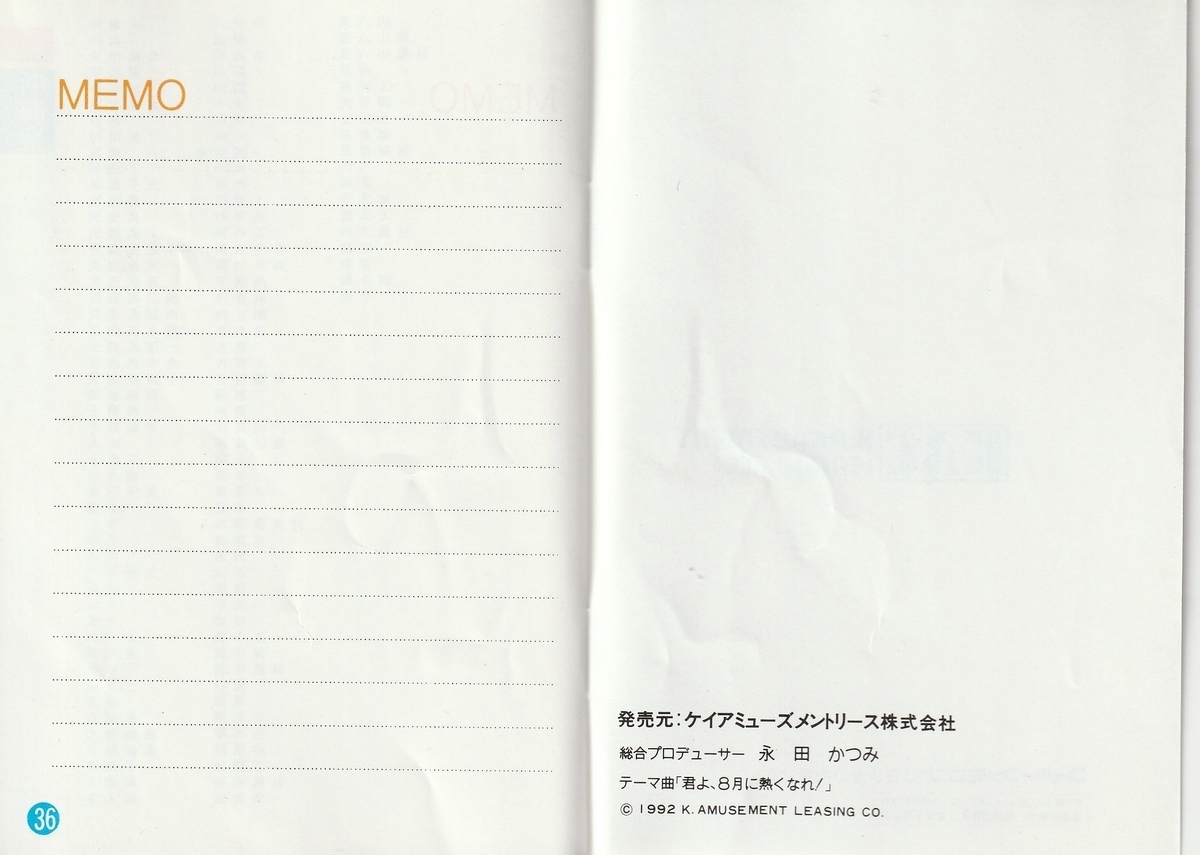 MEMO
36
発売元:ケイアミューズメントリース株式会社
総合プロデューサー 永 田 かつみ
テーマ曲「君よ、8月に熱くなれ!」
© 1992 K. AMUSEMENT LEASING CO.